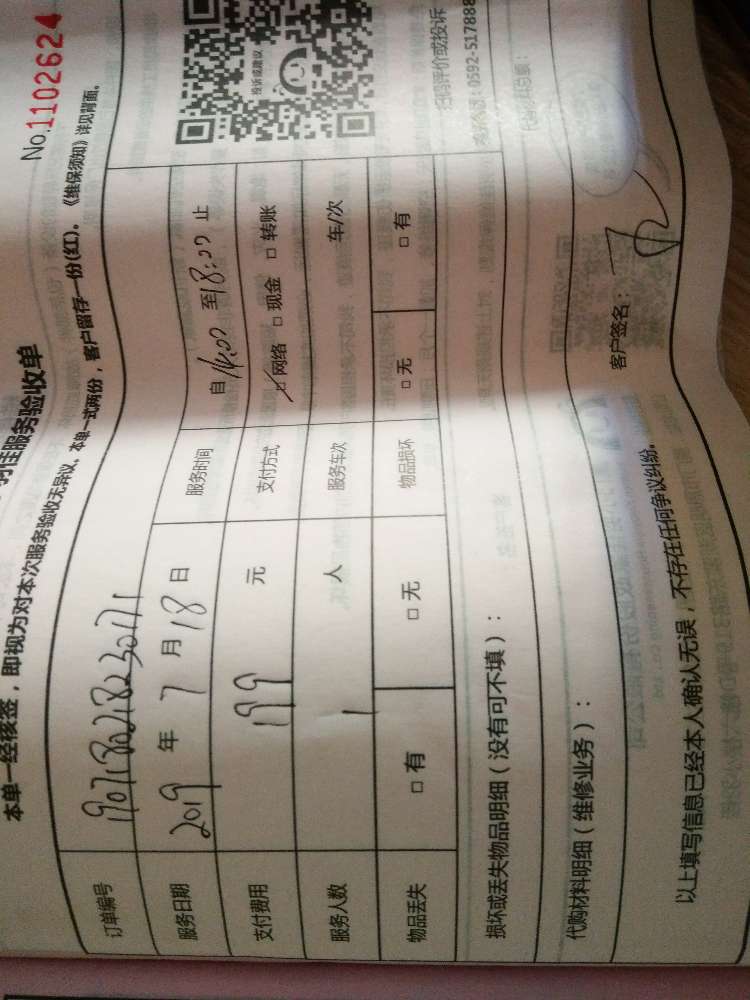 No.1102624
佳服务验收单
本单一经核签，即视为对本次服务验收无异议，本单一式两份，客户留存一份(红)。《维保须知》详见背面。
订单编号 190718021823017171
服务日期 2019 年 7 月 18 日 服务时间 自 14:00 至 18:00 止
支付费用 199 元 支付方式 ☑ 网络 □ 现金 □ 转账
服务人数 1 人 服务车次 车/次
物品丢失 □ 有 □ 无 物品损坏 □ 无 □ 有
投诉或建议
扫码评价或投诉
0592-517888
损坏或丢失物品明细（没有可不填）：
代购材料明细（维修业务）：
以上填写信息已经本人确认无误，不存在任何争议纠纷。
客户签名：